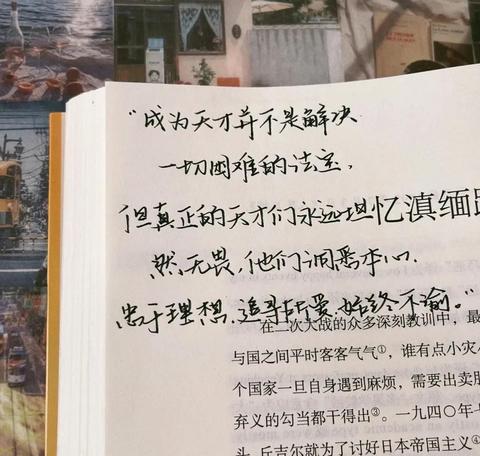 “成为天才并不是解决
一切困难的法宝,
但真正的天才们永远坦
然无畏,他们洞悉本心.
忠于理想,追寻挚爱,始终不渝。”
忆滇缅
在二次大战的众多深刻教训中,最
与国之间平时客客气气①,谁有点小灾
个国家一旦自身遇到麻烦,需要出卖
弃义的勾当都干得出③。一九四〇年七
头,丘吉尔就为了讨好日本帝国主义④